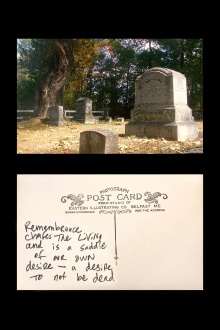 PHOTOGRAPH
POST CARD
FROM STUDIO OF
EASTERN ILLUSTRATING CO. BELFAST ME.
CORRESPONDENCE AND THE ADDRESS
Remembrance
chafes The Living
and is a saddle
of our own
desire — a desire
to not be dead